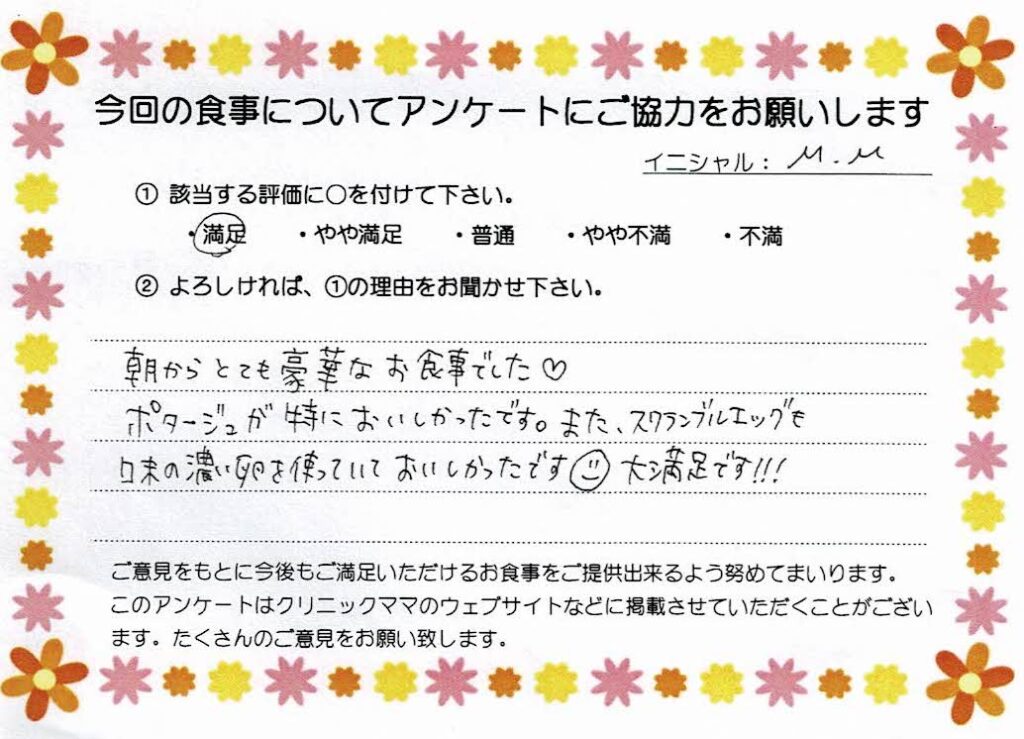 今回の食事についてアンケートにご協力をお願いします
イニシャル： M.M
① 該当する評価に○を付けて下さい。
・満足 ・やや満足 ・普通 ・やや不満 ・不満
② よろしければ、①の理由をお聞かせ下さい。
朝からとても豪華なお食事でした♡
ポタージュが特においしかったです。また、スクランブルエッグも
味の濃い卵を使っていておいしかったです☺ 大満足です!!!
ご意見をもとに今後もご満足いただけるお食事をご提供出来るよう努めてまいります。
このアンケートはクリニックママのウェブサイトなどに掲載させていただくことがござい
ます。たくさんのご意見をお願い致します。